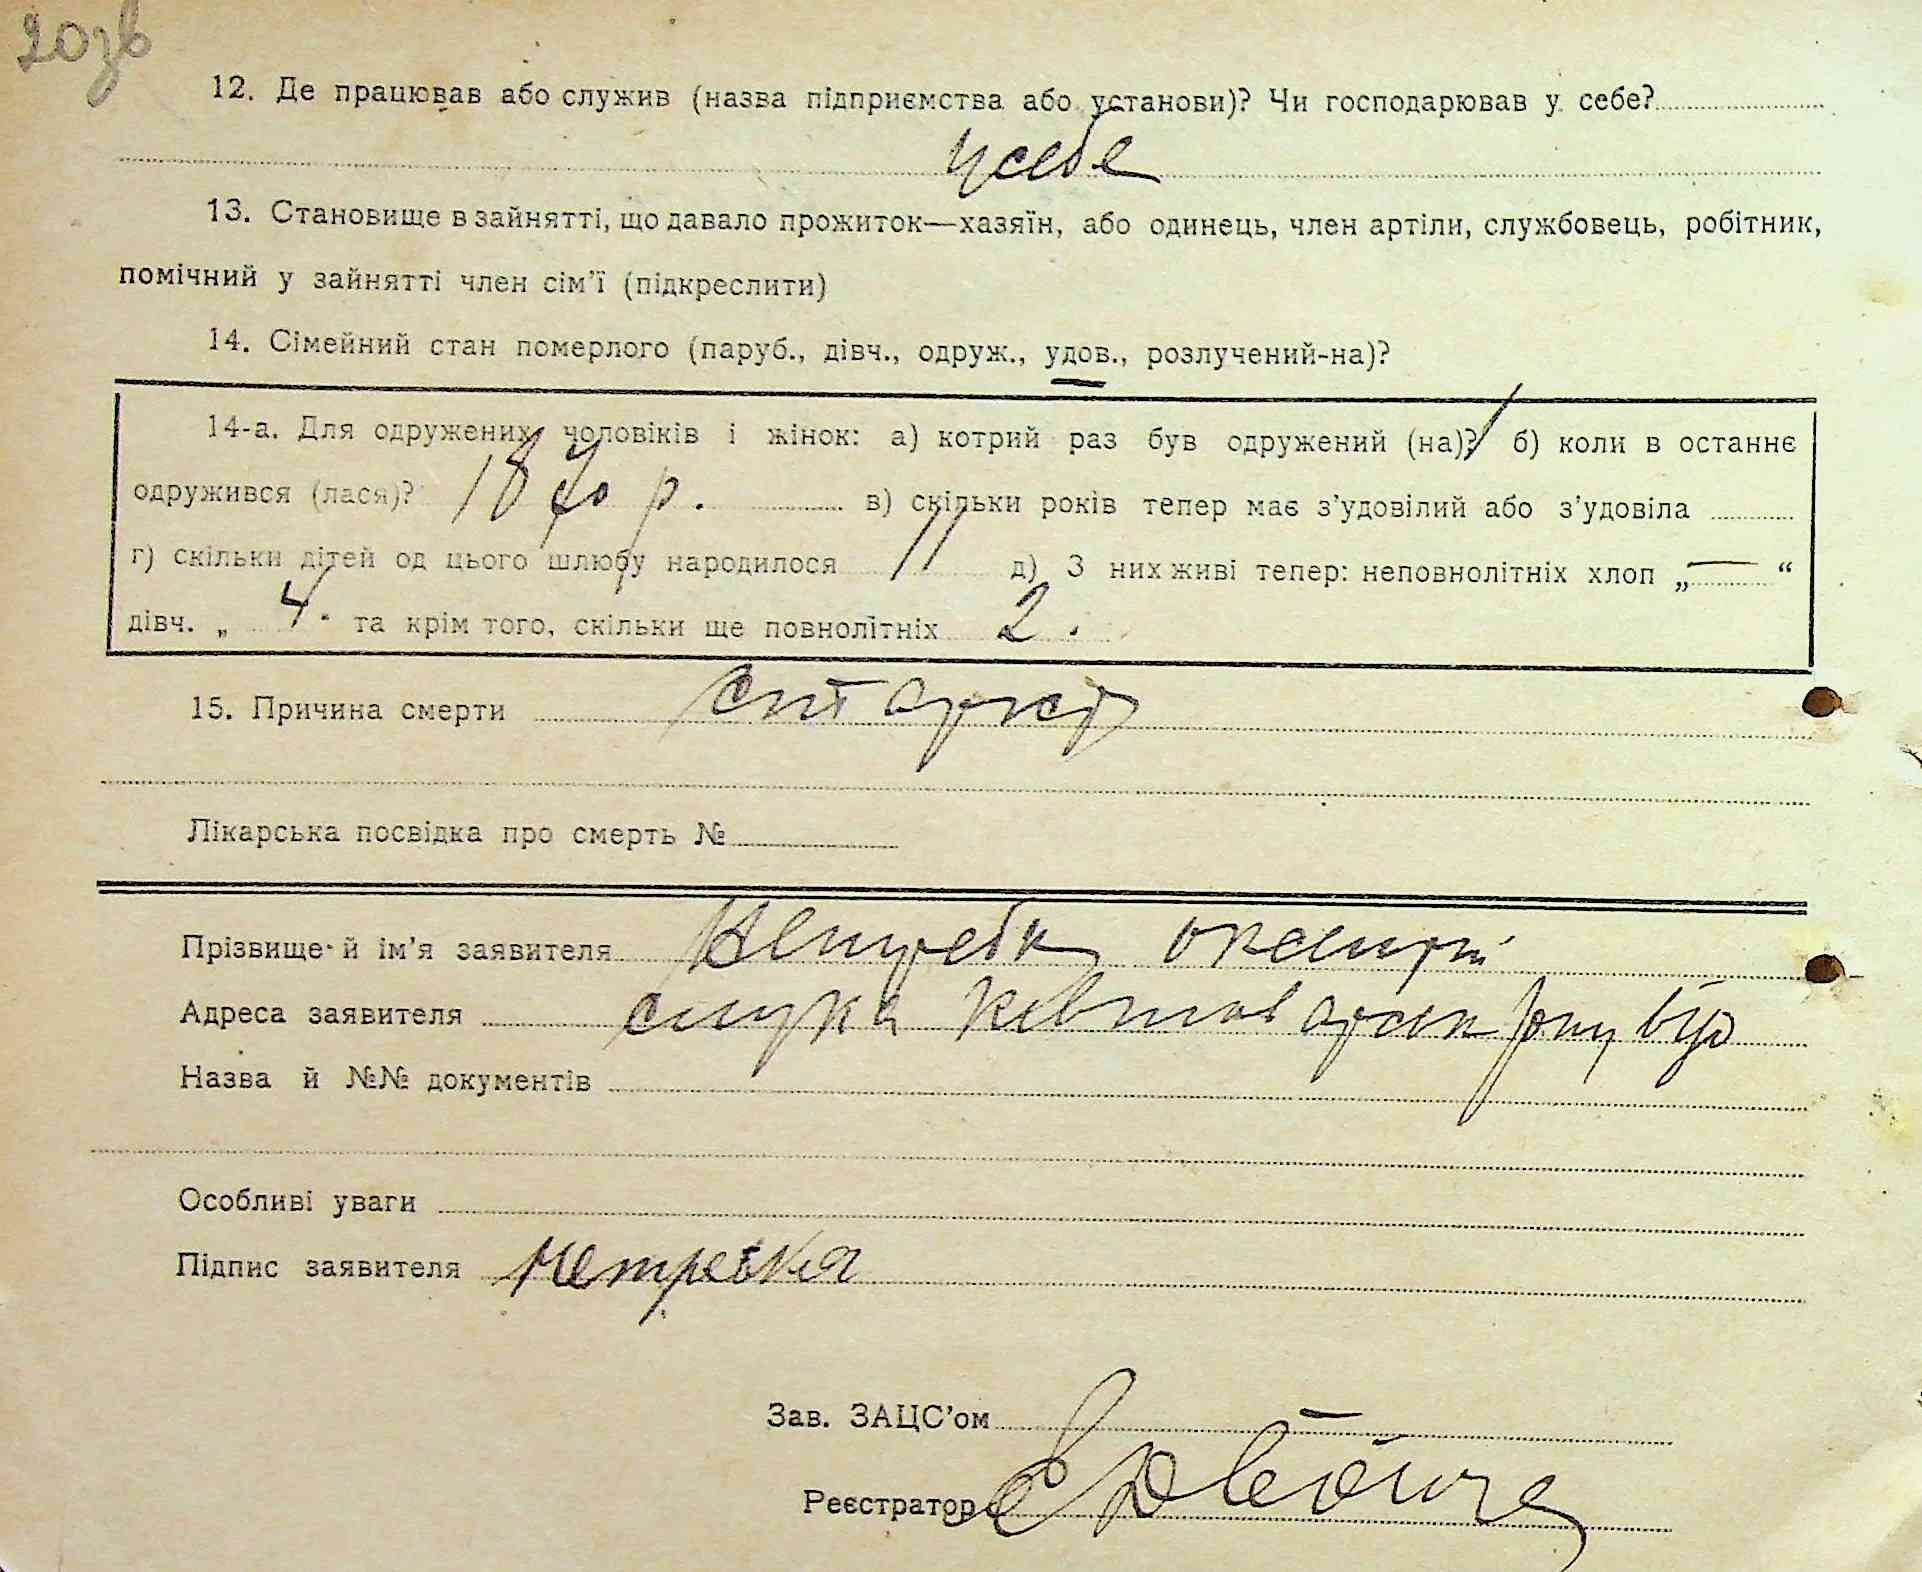 20зв
12. Де працював або служив (назва підприємства або установи)? Чи господарював у себе?
у себе
13. Становище в зайнятті, що давало прожиток—хазяїн, або одинець, член артіли, службовець, робітник,
помічний у зайнятті член сім'ї (підкреслити)
14. Сімейний стан померлого (паруб., дівч., одруж., удов., розлучений-на)?
14-а. Для одружених чоловіків і жінок: а) котрий раз був одружений (на)? 1 б) коли в останнє
одружився (лася)? р. в) скільки років тепер має з'удовілий або з'удовіла
г) скільки дітей од цього шлюбу народилося 11 д) З них живі тепер: неповнолітніх хлоп „—“
дівч. „ 4. та крім того, скільки ще повнолітніх 2.
15. Причина смерти
Лікарська посвідка про смерть №
Прізвище й ім'я заявителя
Адреса заявителя
Назва й №№ документів
Особливі уваги
Підпис заявителя Нетребкя
Зав. ЗАЦС'ом —
Реєстратор